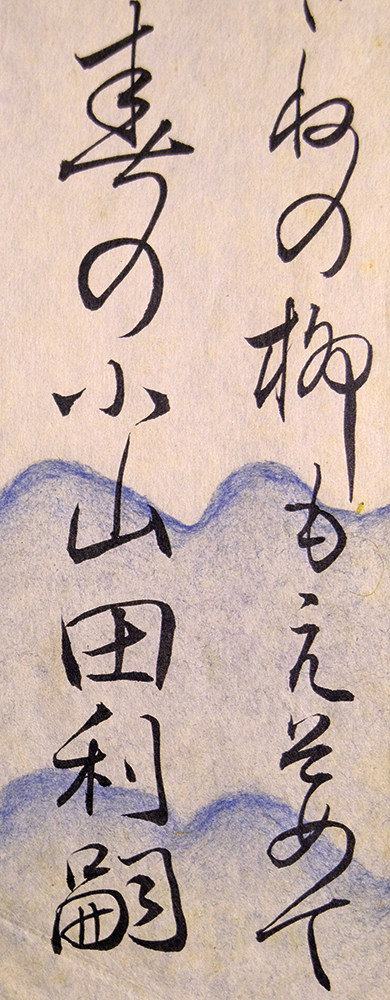 ねの柳もえそめて
春の小山田利嗣